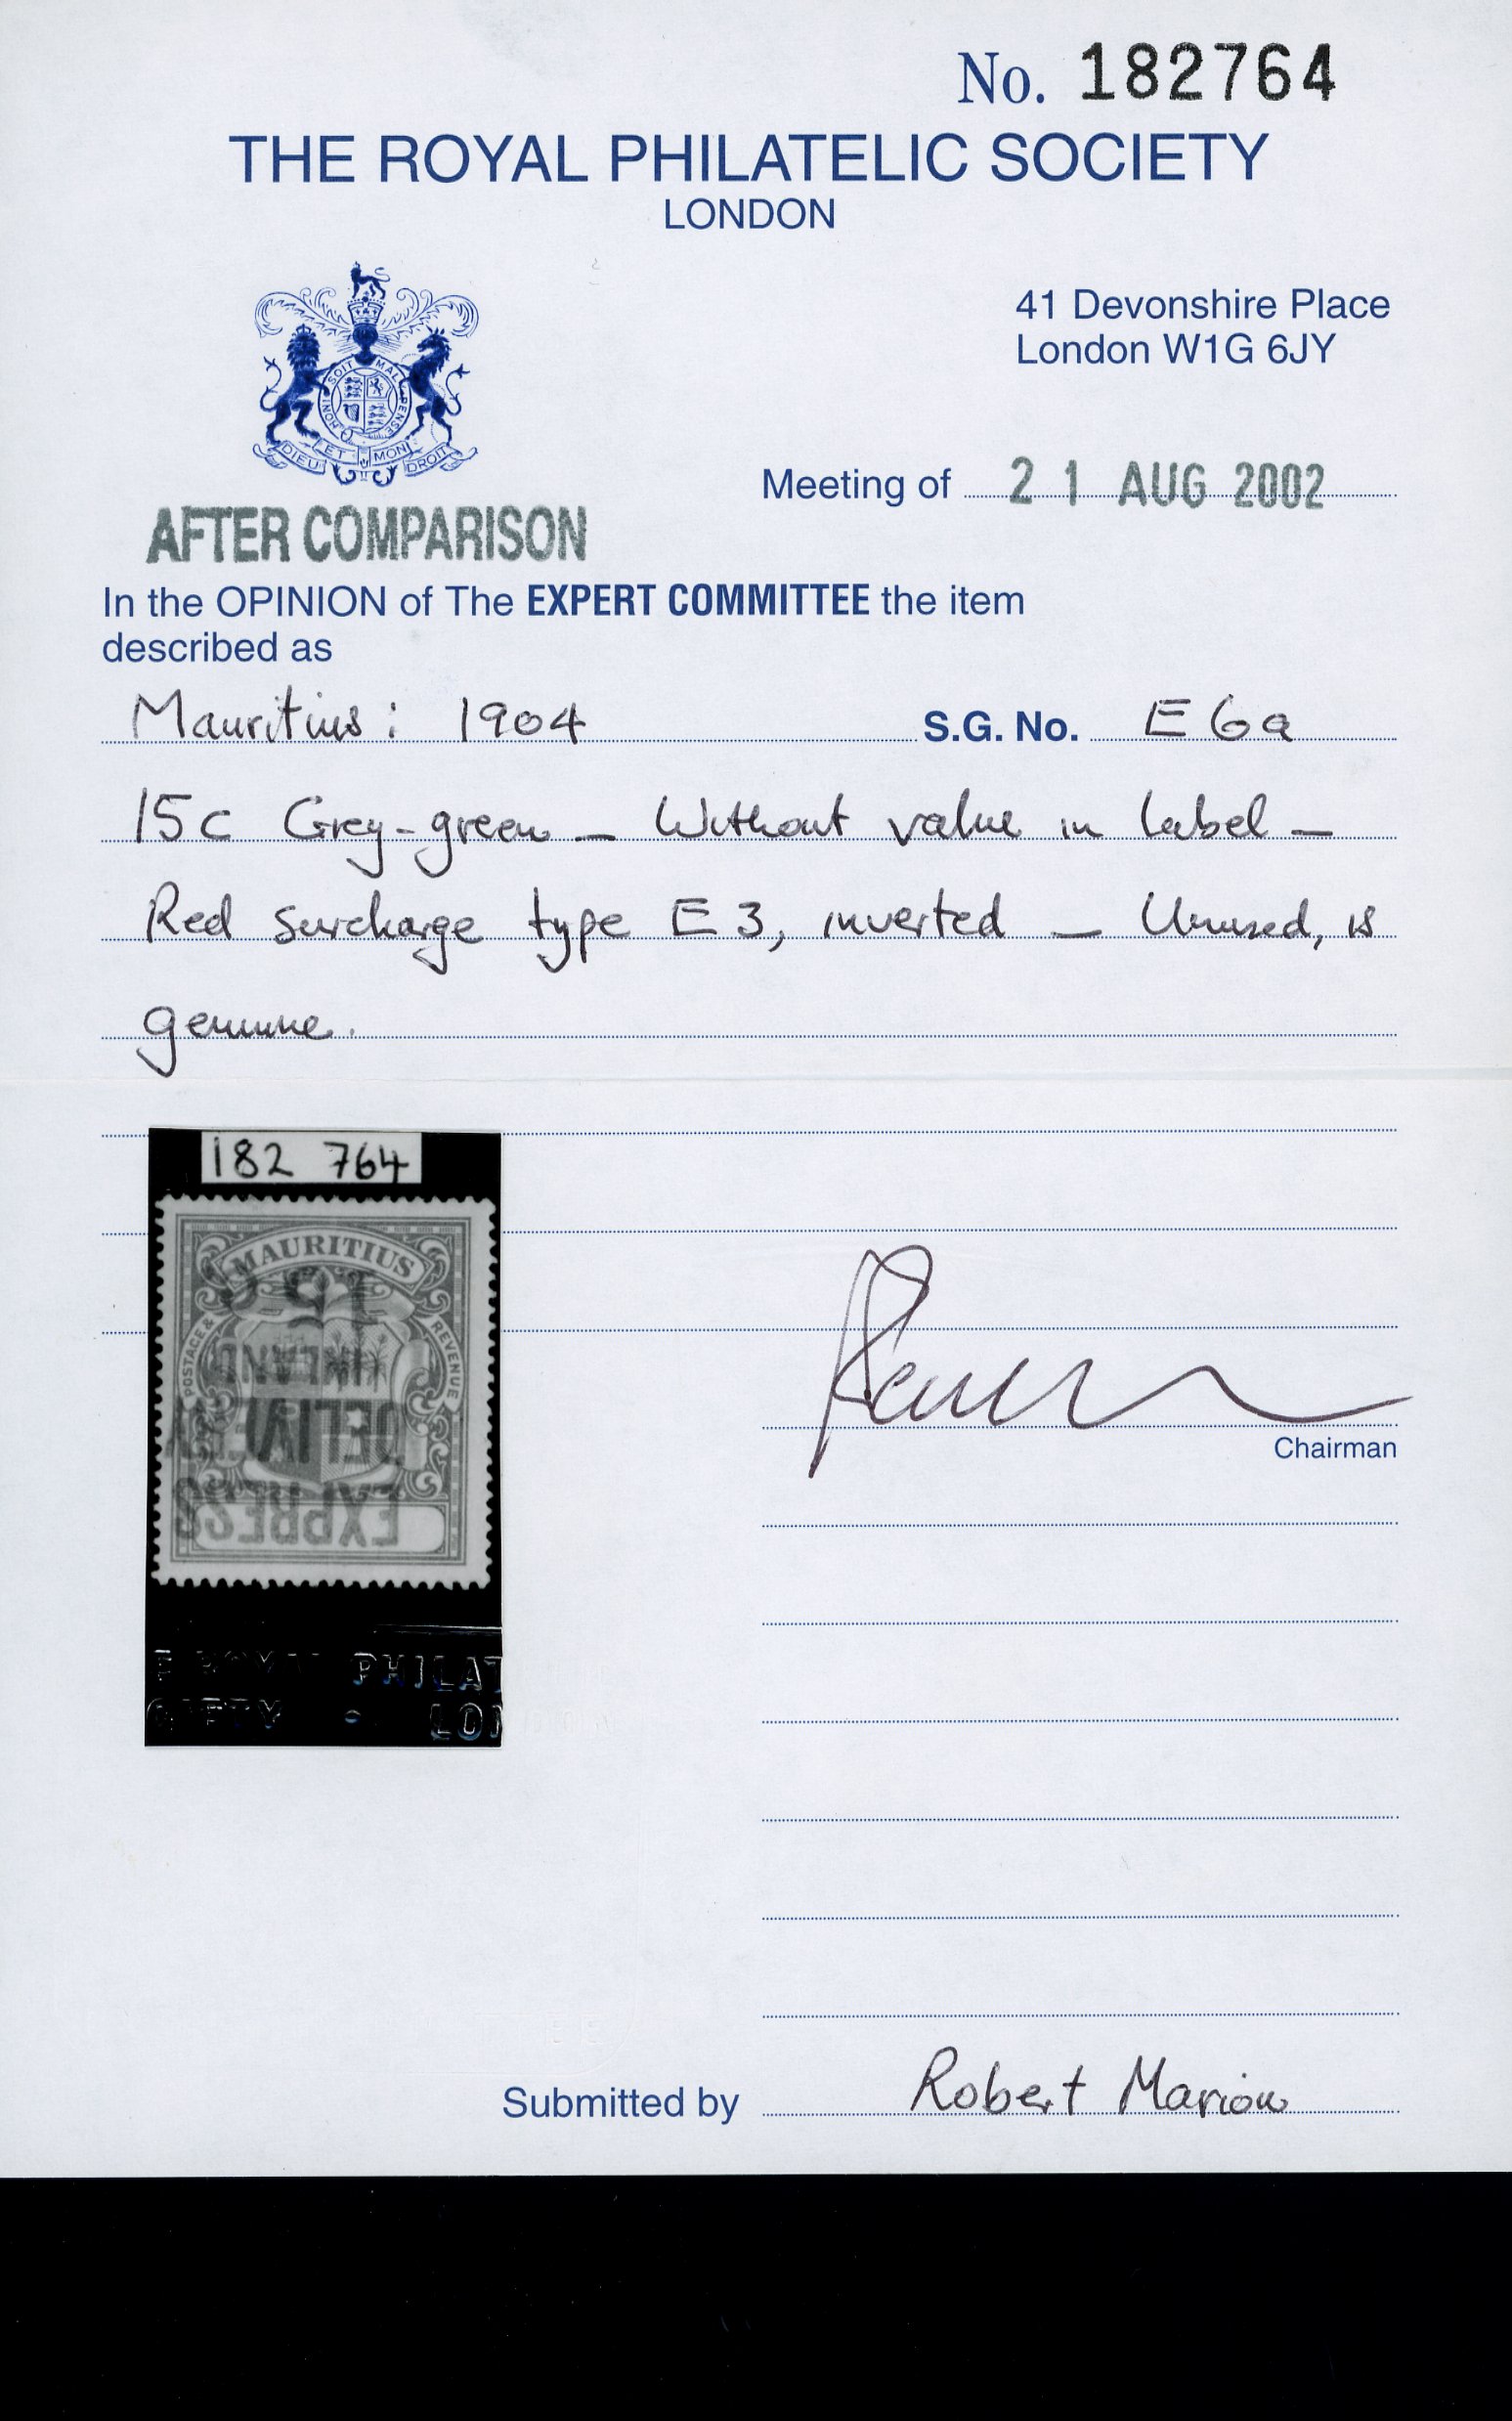 No. 182764
THE ROYAL PHILATELIC SOCIETY
LONDON
41 Devonshire Place
London W1G 6JY
HONI SOIT MAL PENSE
DIEU ET MON DROIT
Meeting of 21 AUG 2002
AFTER COMPARISON
In the OPINION of The EXPERT COMMITTEE the item
described as
Mauritius: 1904 S.G. No. E6a
15c Grey-green – Without value in label –
Red surcharge type E3, inverted – Unused, is
genuine.
182 764
MAURITIUS
POSTAGE & REVENUE
15c
INLAND
DELIVERY
EXPRESS
PHILAT
LON
Chairman
Submitted by Robert Marion